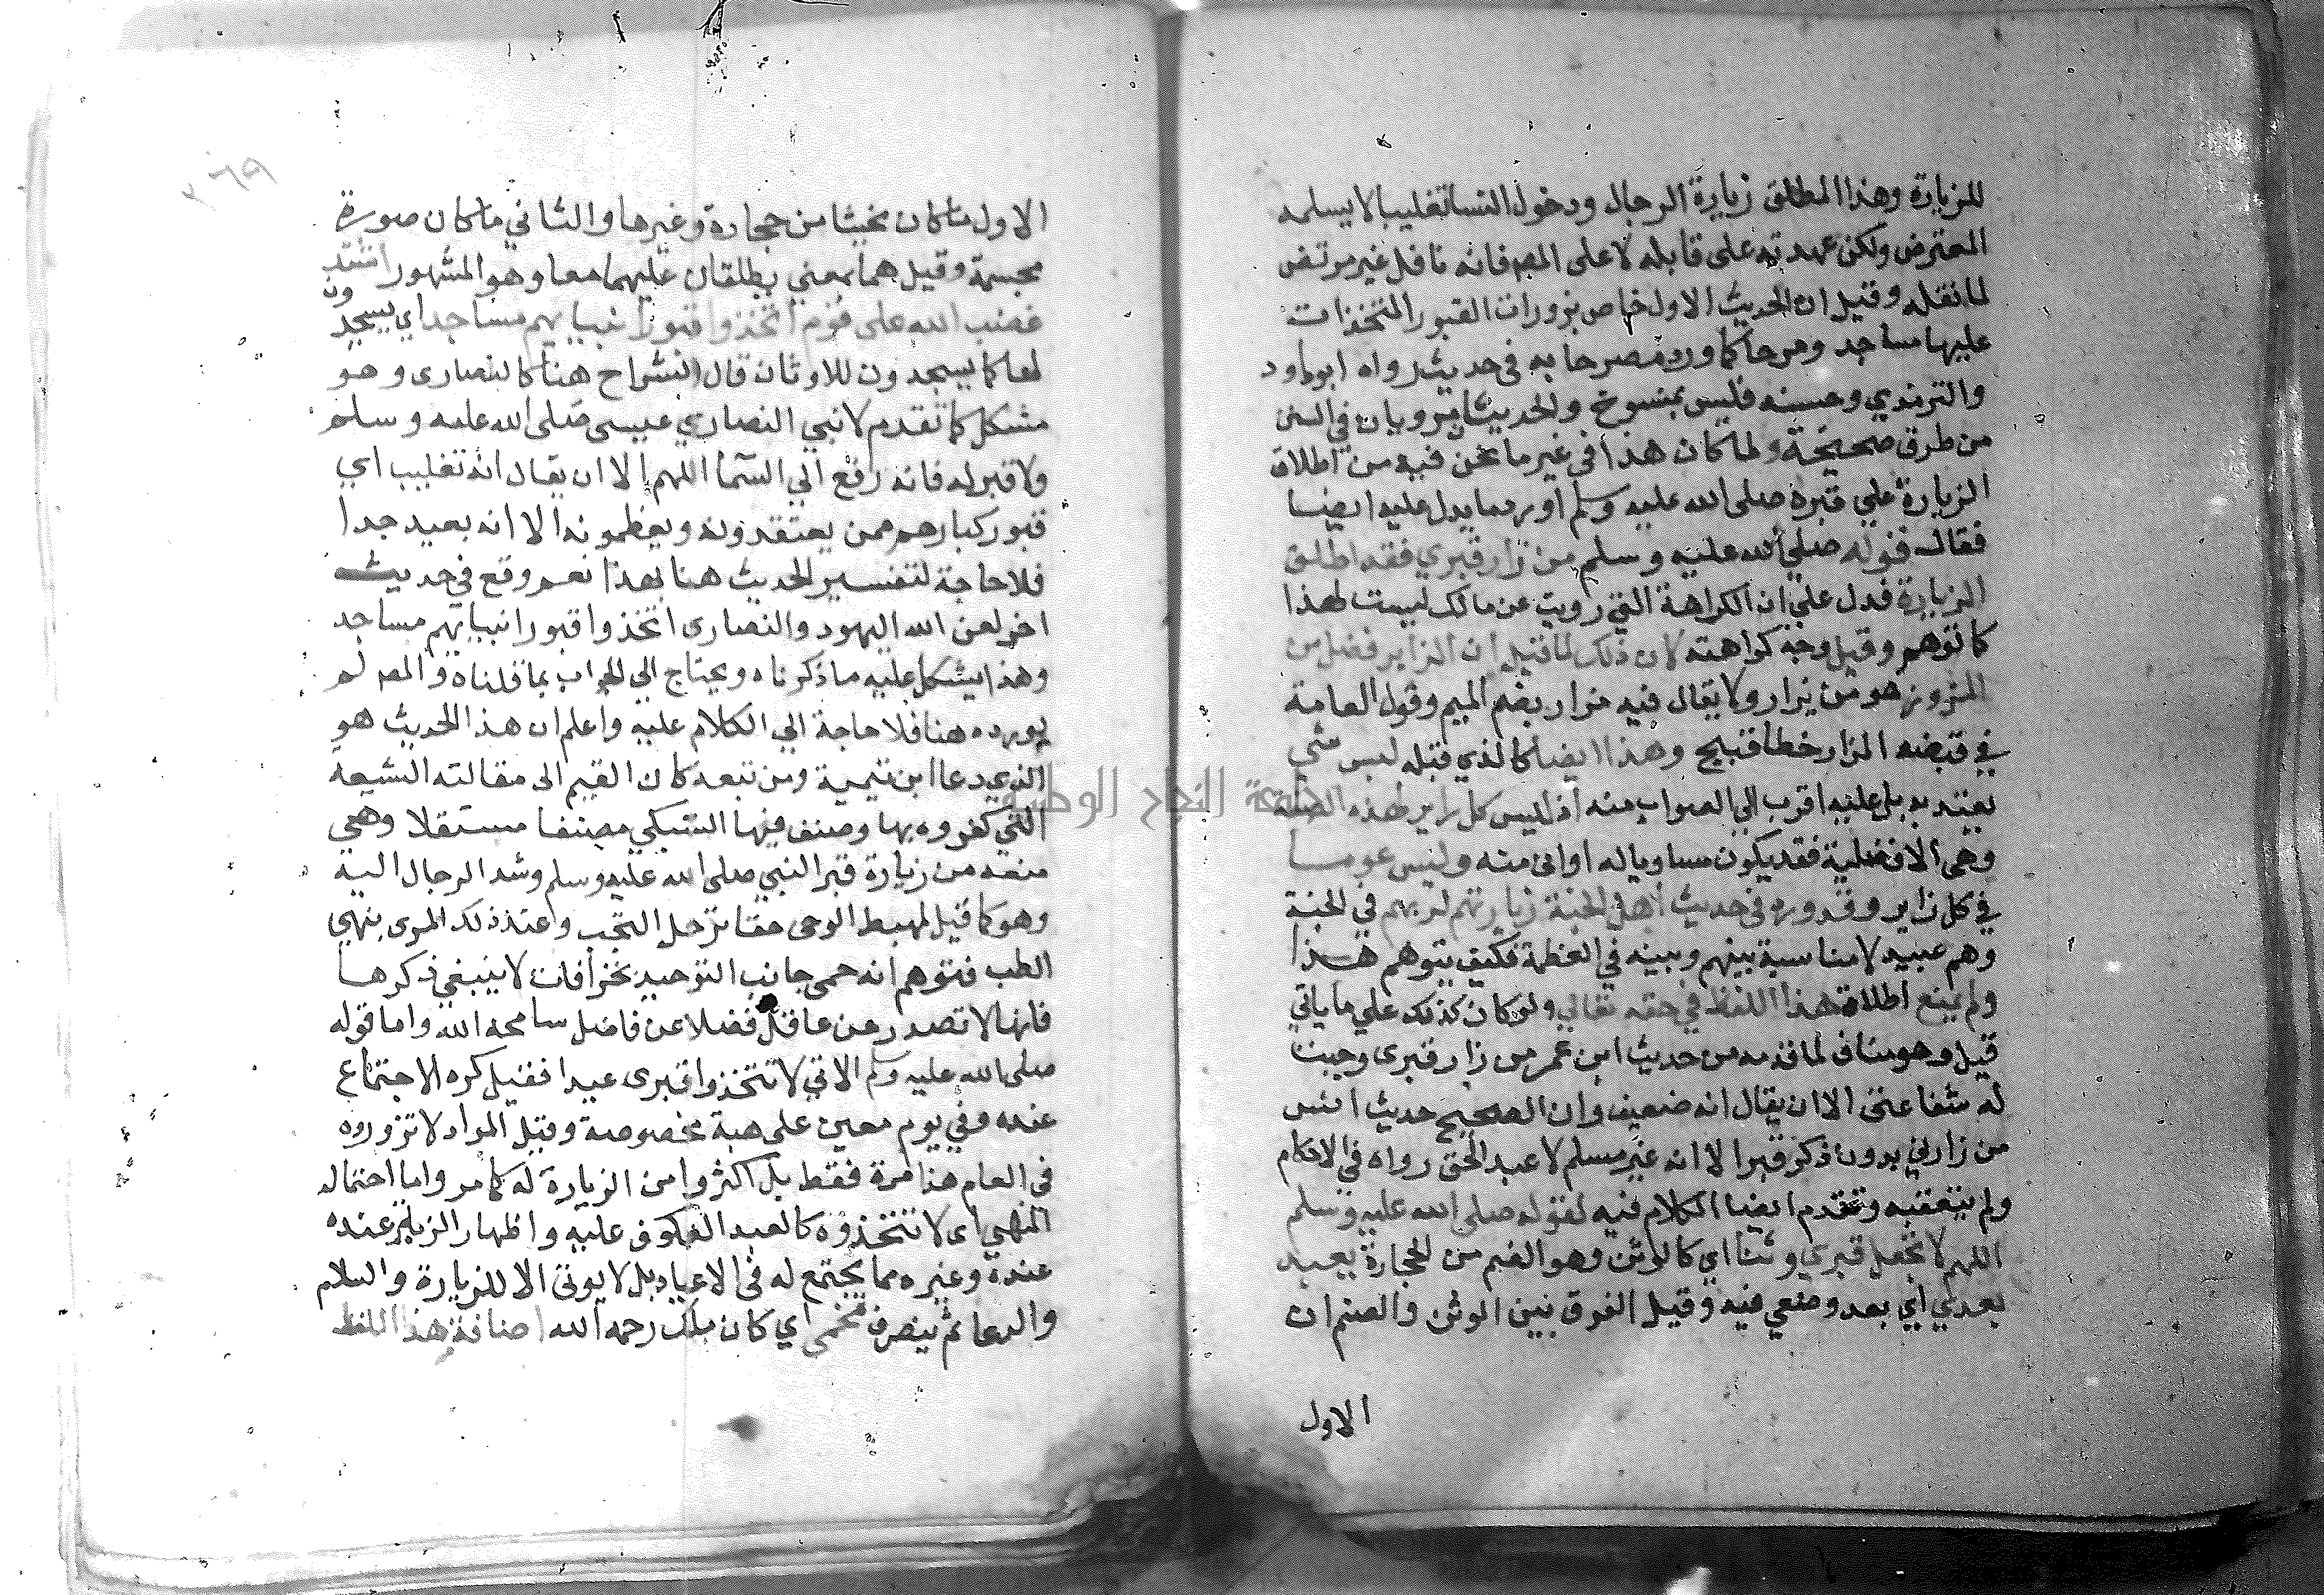 للزيارة وهذا المطلق زيارة الرجال ودخول النسا تغليبا لا يسلمه
المعترض ولكن عهدته على قايله لا على المص فانه ناقل غير مرتض
لما نقله وقيل ان الحديث الاول خاص بزورات القبور المتخذات
عليها مساجد وسرجا كما ورد مصرحا به في حديث رواه ابو داود
والترمذي وحسنه فليس بمنسوخ والحديثان مرويان في السنن
من طرق صحيحة ولما كان هذا في غير ما نحن فيه من اطلاق
الزيارة علي قبره صلى الله عليه وسلم اورد ما يدل عليه ايضا
فقال قوله صلي الله عليه وسلم من زار قبري فقد اطلق
الزيارة فدل علي ان الكراهة التي رويت عن مالك ليست لهذا
كما توهم وقيل وجه كراهته لان ذلك لما قيل ان الزاير افضل من
المزور هو من يزار ولا يقال فيه مزار بضم الميم وقول العامة
في قبضه المزار خطا قبيح وهذا ايضا كالذي قبله ليس بشي
يعتد به بل عليه اقرب الي الصواب منه اذ ليس كل زاير بهذه الصفة
وهي الافضلية فقد يكون مساويا له او ادنى منه وليس عموما
في كل زاير وقد ورد في حديث اهل الجنة زيارتهم لربهم في الجنة
وهم عبيد لا مناسبة بينهم وبينه في العظمة فكيف يتوهم هذا
ولم يمنع اطلاق هذا اللفظ في حقه تعالي ولو كان كذلك علي ما ياتي
قيل وهو مناف لما قدمه من حديث ابن عمر من زار قبري وجبت
له شفاعتى الا ان يقال انه ضعيف وان الصحيح حديث انس
من زارني بدون ذكر قبر الا انه غير مسلم لا عبد الحق رواه في الاحكام
ولم يتعقبه وتقدم ايضا الكلام فيه لقوله صلى الله عليه وسلم
اللهم لا تجعل قبري وثنا اي كالوثن وهو الصنم من الحجارة يعبد
بعدي اي بعد وضعي فيه وقيل الفرق بين الوثن والصنم ان
الاول
٣٦٩
الاول ما كان نحيتا من حجارة وغيرها والثاني ما كان صورة
مجسمة وقيل هما بمعني يطلقان عليهما معا وهو المشهور اشتد
غضب الله على قوم اتخذوا قبور انبيايهم مساجد اي يسجدون
لها كما يسجدون للاوثان قال الشراح هنا كالنصارى وهو
مشكل كما تقدم لا نبي النصاري عيسى صلى الله عليه وسلم
ولا قبر له فانه رفع الي السماء اللهم الا ان يقال انه تغليب اي
قبور كبارهم ممن يعتقدونه ويعظمونه الا انه بعيد جدا
فلا حاجة لتفسير الحديث هنا بهذا نعم وقع في حديث
اخر لعن الله اليهود والنصارى اتخذوا قبور انبيايهم مساجد
وهذا يشكل عليه ما ذكرناه ويحتاج الي الجواب بما قلناه والمص لم
يورده هنا فلا حاجة الي الكلام عليه واعلم ان هذا الحديث هو
الذي دعا ابن تيمية ومن تبعه كابن القيم الى مقالته الشنيعة
التي كفروه بها وصنف فيها السبكي مصنفا مستقلا وهي
منعه من زيارة قبر النبي صلى الله عليه وسلم وشد الرحال اليه
وهو كما قيل لمهبط الوحى حقا ترحل النجب وعند ذلك المرجى ينهي
الطلب فتوهم انه حمى جانب التوحيد بخرافات لا ينبغي ذكرها
فانها لا تصدر عن عاقل فضلا عن فاضل سامحه الله واما قوله
صلى الله عليه وسلم الاتي لا تتخذوا قبرى عيدا فقيل كره الاجتماع
عنده وفي يوم معين على هيئة مخصوصة وقيل المراد لا تزوروه
في العام هذا مرة فقط بل اكثروا من الزيارة له كما مر واما احتماله
النهي اى لا تتخذوه كالعيد العكوف عليه واظهار الزينة عنده
عنده وغيره مما يجتمع له في الاعياد بل لا يوتى الا للزيارة والسلام
والدعا ثم ينصرف فحمى اي كان مالك رحمه الله اضافة هذا اللفظ
جامعة النجاح الوطنية